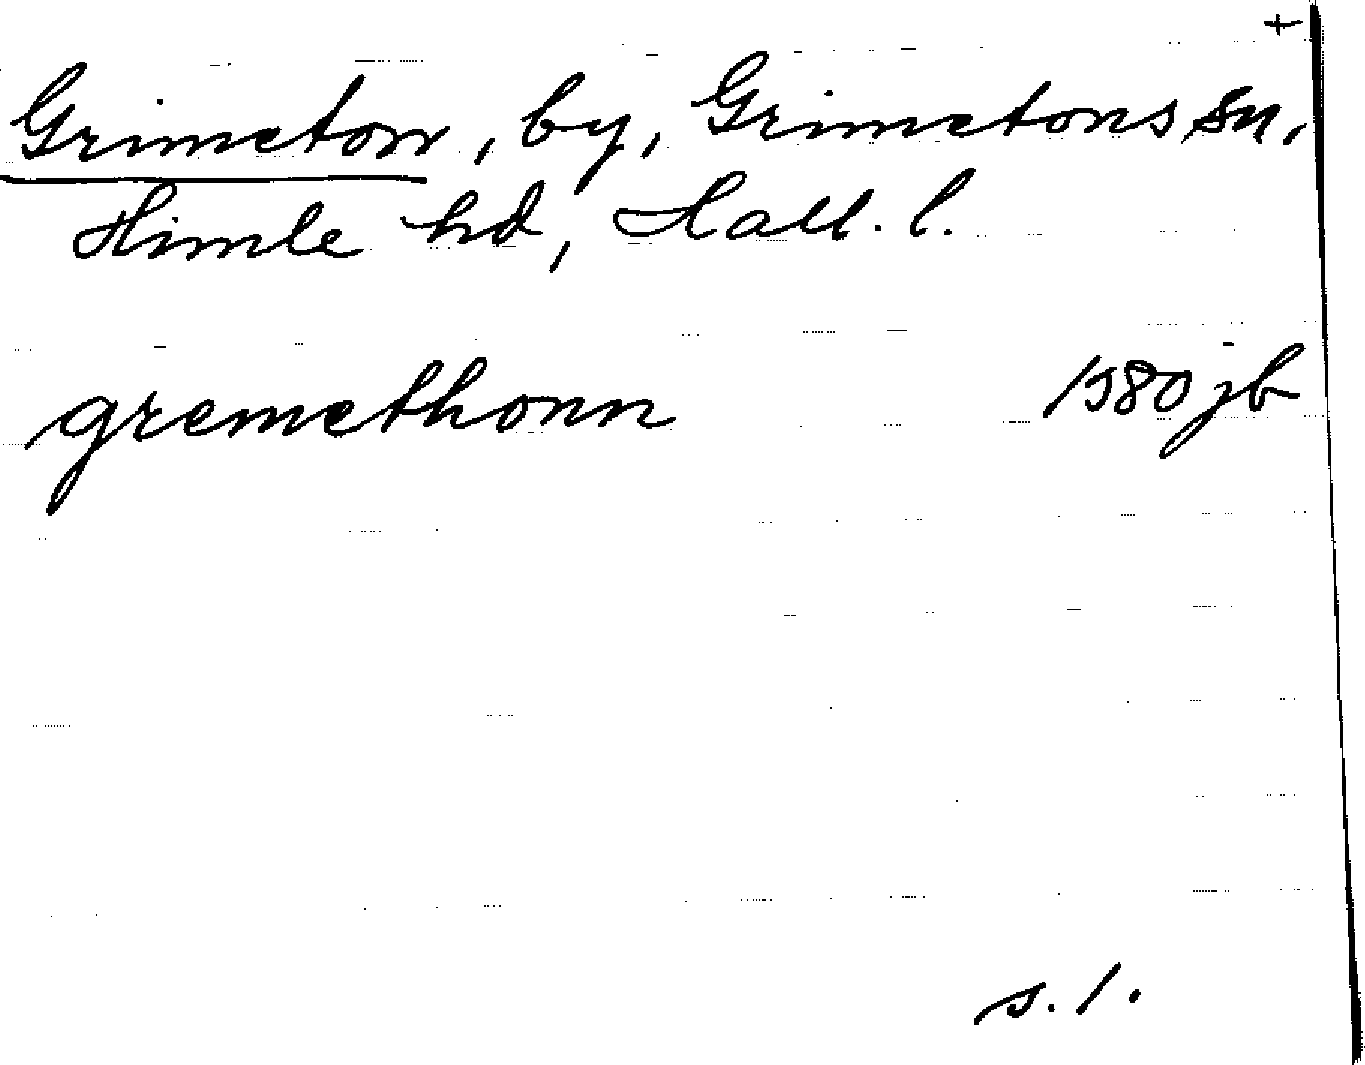 +
Grimeton, by, Grimetons sn,
Himle hd, Hall. l.
gremethonn 1580 jb
s. 1.